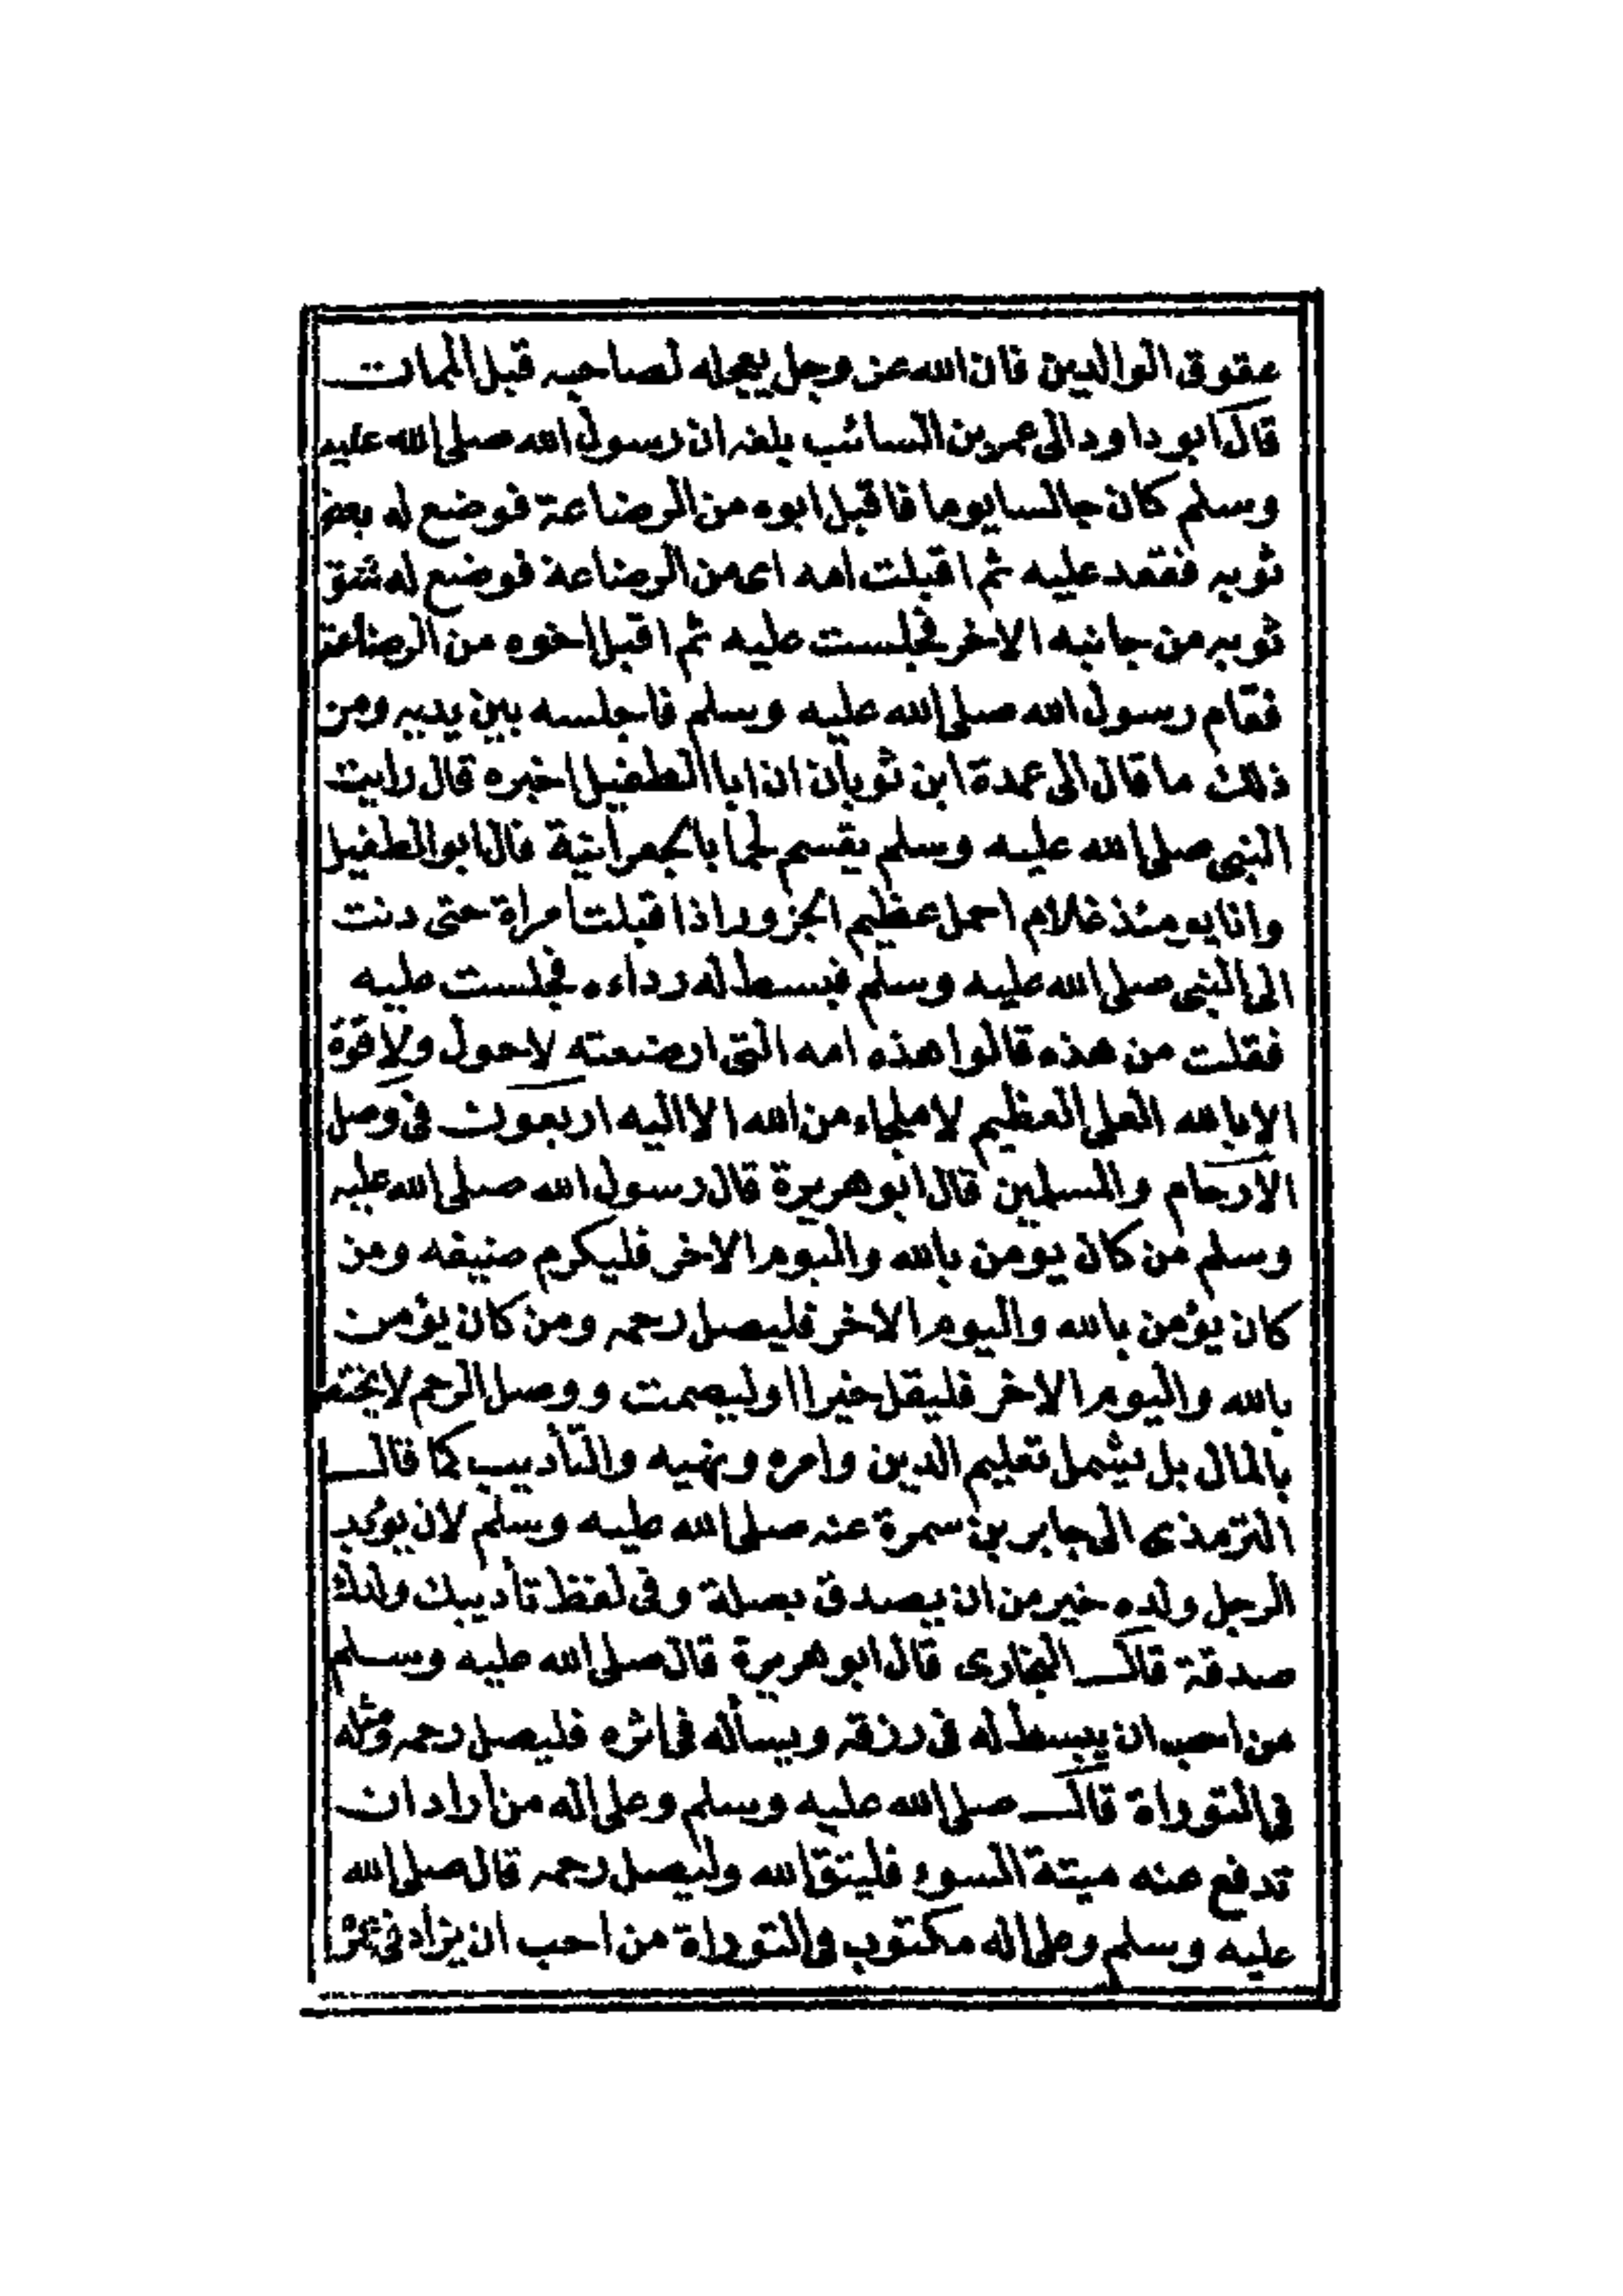 عقوق الوالدين فان الله عز وجل يعجله لصاحبه قبل الممات
قال ابو داود الى عمر بن السائب بلغه ان رسول الله صلى الله عليه
وسلم كان جالسا يوما فاقبل ابوه من الرضاعة فوضع له بعض
ثوبه فقعد عليه ثم اقبلت امه اى من الرضاعة فوضع له شق
ثوبه من جانبه الاخر فجلست عليه ثم اقبل اخوه من الرضاعة
فقام رسول الله صلى الله عليه وسلم فاجلسه بين يديه ومن
ذلك ما قال الى عمدة ابن ثوبان ان ابا الطفيل اخبره قال رايت
النبى صلى الله عليه وسلم يقسم لحما بالجعرانية قال ابو الطفيل
وانا يومئذ غلام احمل عظيم الجزور اذا قبلت امراة حتى دنت
الى النبى صلى الله عليه وسلم فبسط له رداءه فجلست عليه
فقلت من هذه قالوا هذه امه التى ارضعته لاحول ولا قوة
الا بالله العلى العظيم لا ملجاء من الله الا اليه اربعون فى وصل
الارحام والمسلمين قال ابو هريرة قال رسول الله صلى الله عليه
وسلم من كان يومن بالله واليوم الاخر فليكرم ضيفه ومن
كان يؤمن بالله واليوم الاخر فليصل رحمه ومن كان يؤمن
بالله واليوم الاخر فليقل خيرا اوليصمت ووصل الرحم لا يختص
بالمال بل يشمل تعليم الدين وامره ونهيه والتأديب كما قال
الترمذى الى جابر بن سمرة عنه صلى الله عليه وسلم لان يؤدب
الرجل ولده خير من ان يصدق بصلة وفى لفظ تأديبك ولدك
صدقة قال البخارى قال ابو هريرة قال صلى الله عليه وسلم
من احب ان يبسط له فى رزقه ويسأله فى اثره فليصل رحمه ومثله
فى التوراة قال صلى الله عليه وسلم وعلى اله من اراد ان
تدفع عنه ميتة السوء فليتق الله وليصل رحمه قال صلى الله
عليه وسلم وعلى اله مكتوب فى التوراة من احب ان يزاد فى